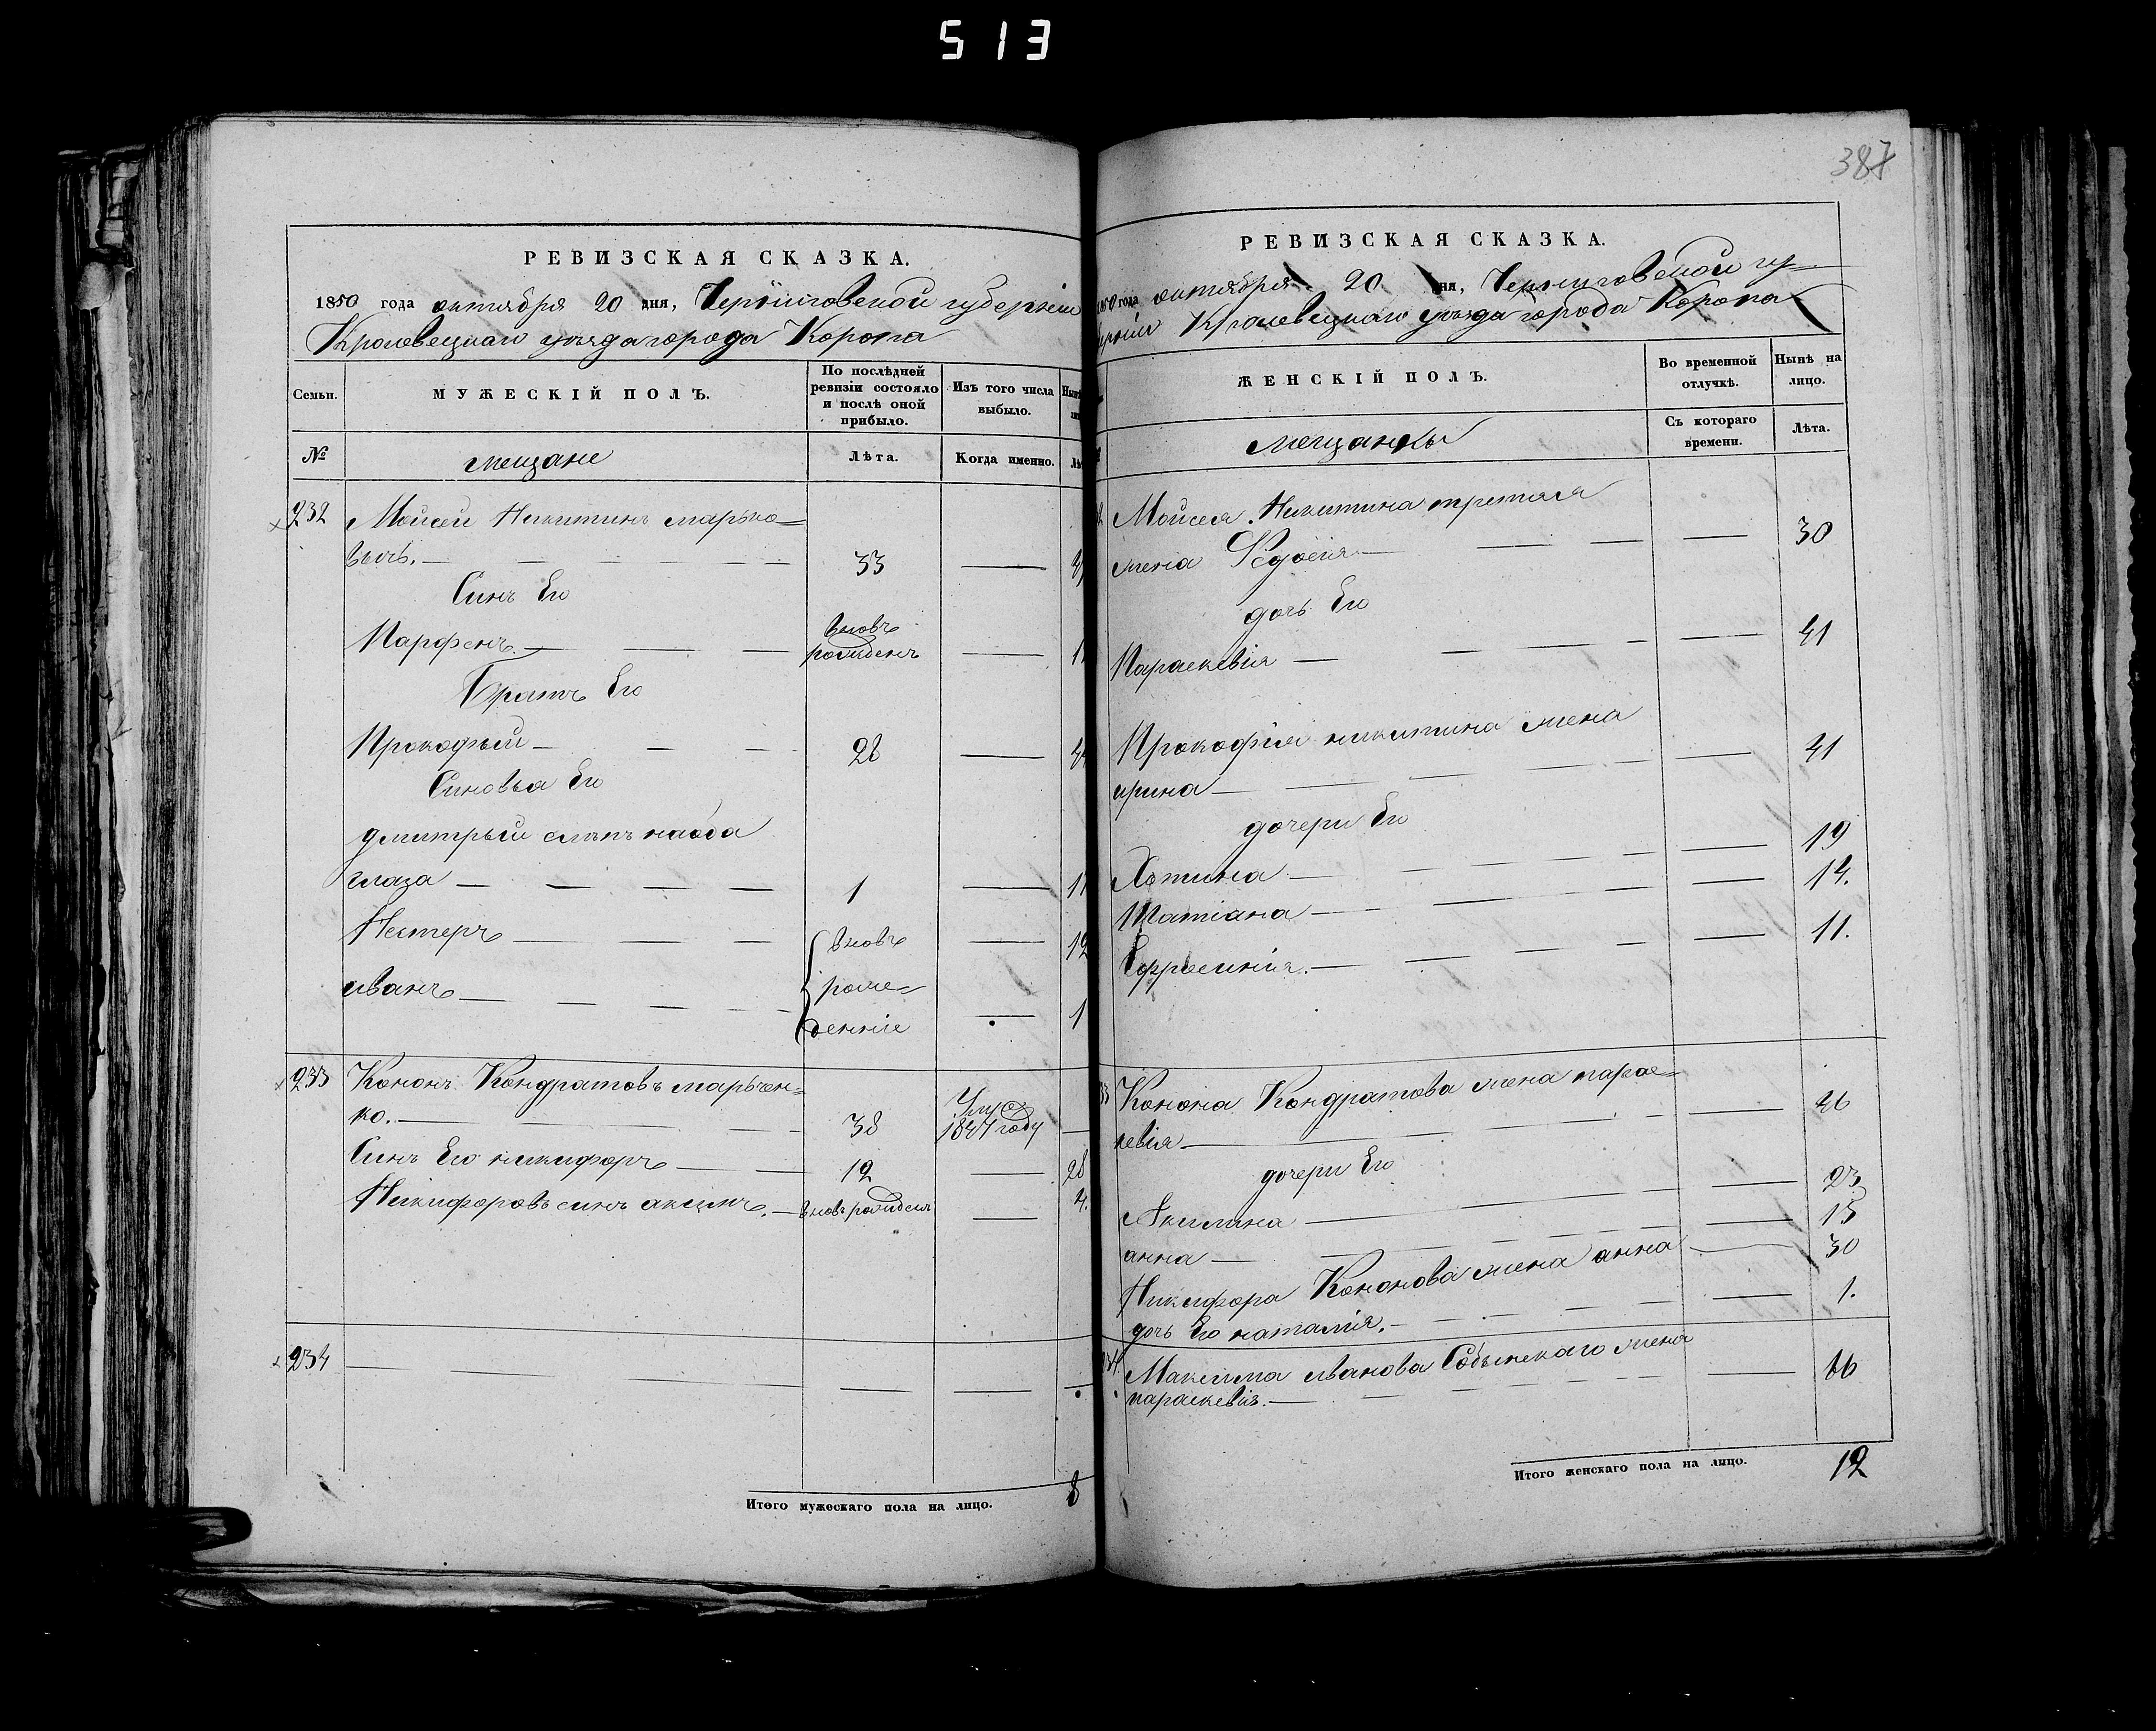 513
РЕВИЗСКАЯ СКАЗКА.
1850 года октября 20 дня, Черниговской губерніи
Кролевецкаго уѣзда города Коропа
Семьи.
МУЖЕСКІЙ ПОЛЪ.
По послѣдней ревизіи состояло и послѣ оной прибыло.
Изъ того числа выбыло.
№
мещане
Лѣта.
Когда именно.
232 Мойсей Никитинъ марько=
вичъ. 33
Синъ Его
Парфенъ. вновь рожденъ
Братъ Его
Прокофый 28
Синовья Его
дмитрый слѣпъ на оба
глаза 1
Нестеръ вновь 12
иванъ роже=
денніе 1
233 Кононъ Кондратовъ марьчен=
ко. 38 Умре 1847 году
Синъ Его никифоръ 12 28
Никифоровъ синъ акимъ. вновь рожденъ 4.
234
Итого мужескаго пола на лицо. 8
387
РЕВИЗСКАЯ СКАЗКА.
1850 года октября 20 дня, Черниговской гу=
берніи Кролевецкаго уѣзда города Коропа
ЖЕНСКІЙ ПОЛЪ.
Во временной отлучкѣ.
Нынѣ на лицо.
мещанки
Съ котораго времени.
Лѣта.
Мойсея Никитина третяя
жена Федосія 30
дочь Его
Параскевія 21
Прокофія никитина жена
ирина 41
дочери Его
Хотина 19
Татіана 14.
Ефросинія. 11.
Конона Кондратова жена парас=
кевія 46
дочери Его
Акилина 23
анна 15
Никифора Кононова жена анна 30
дочь Его наталія. 1.
234 Максима иванова жена
параскевія. 66
Итого женскаго пола на лицо. 12